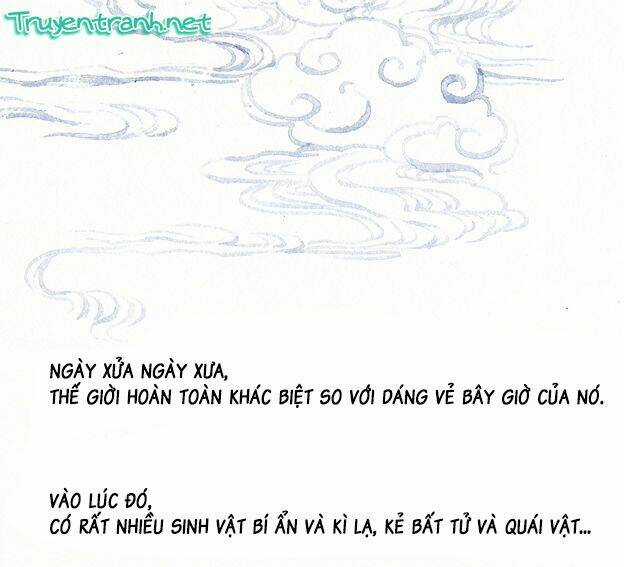 Truyentranh.net
NGÀY XỬA NGÀY XƯA,
THẾ GIỜI HOÀN TOÀN KHÁC BIỆT SO VỚI DÁNG VẺ BÂY GIỜ CỦA NÓ.
VÀO LÚC ĐÓ,
CÓ RẤT NHIỀU SINH VẬT BÍ ẨN VÀ KÌ LẠ, KẺ BẤT TỬ VÀ QUÁI VẬT...